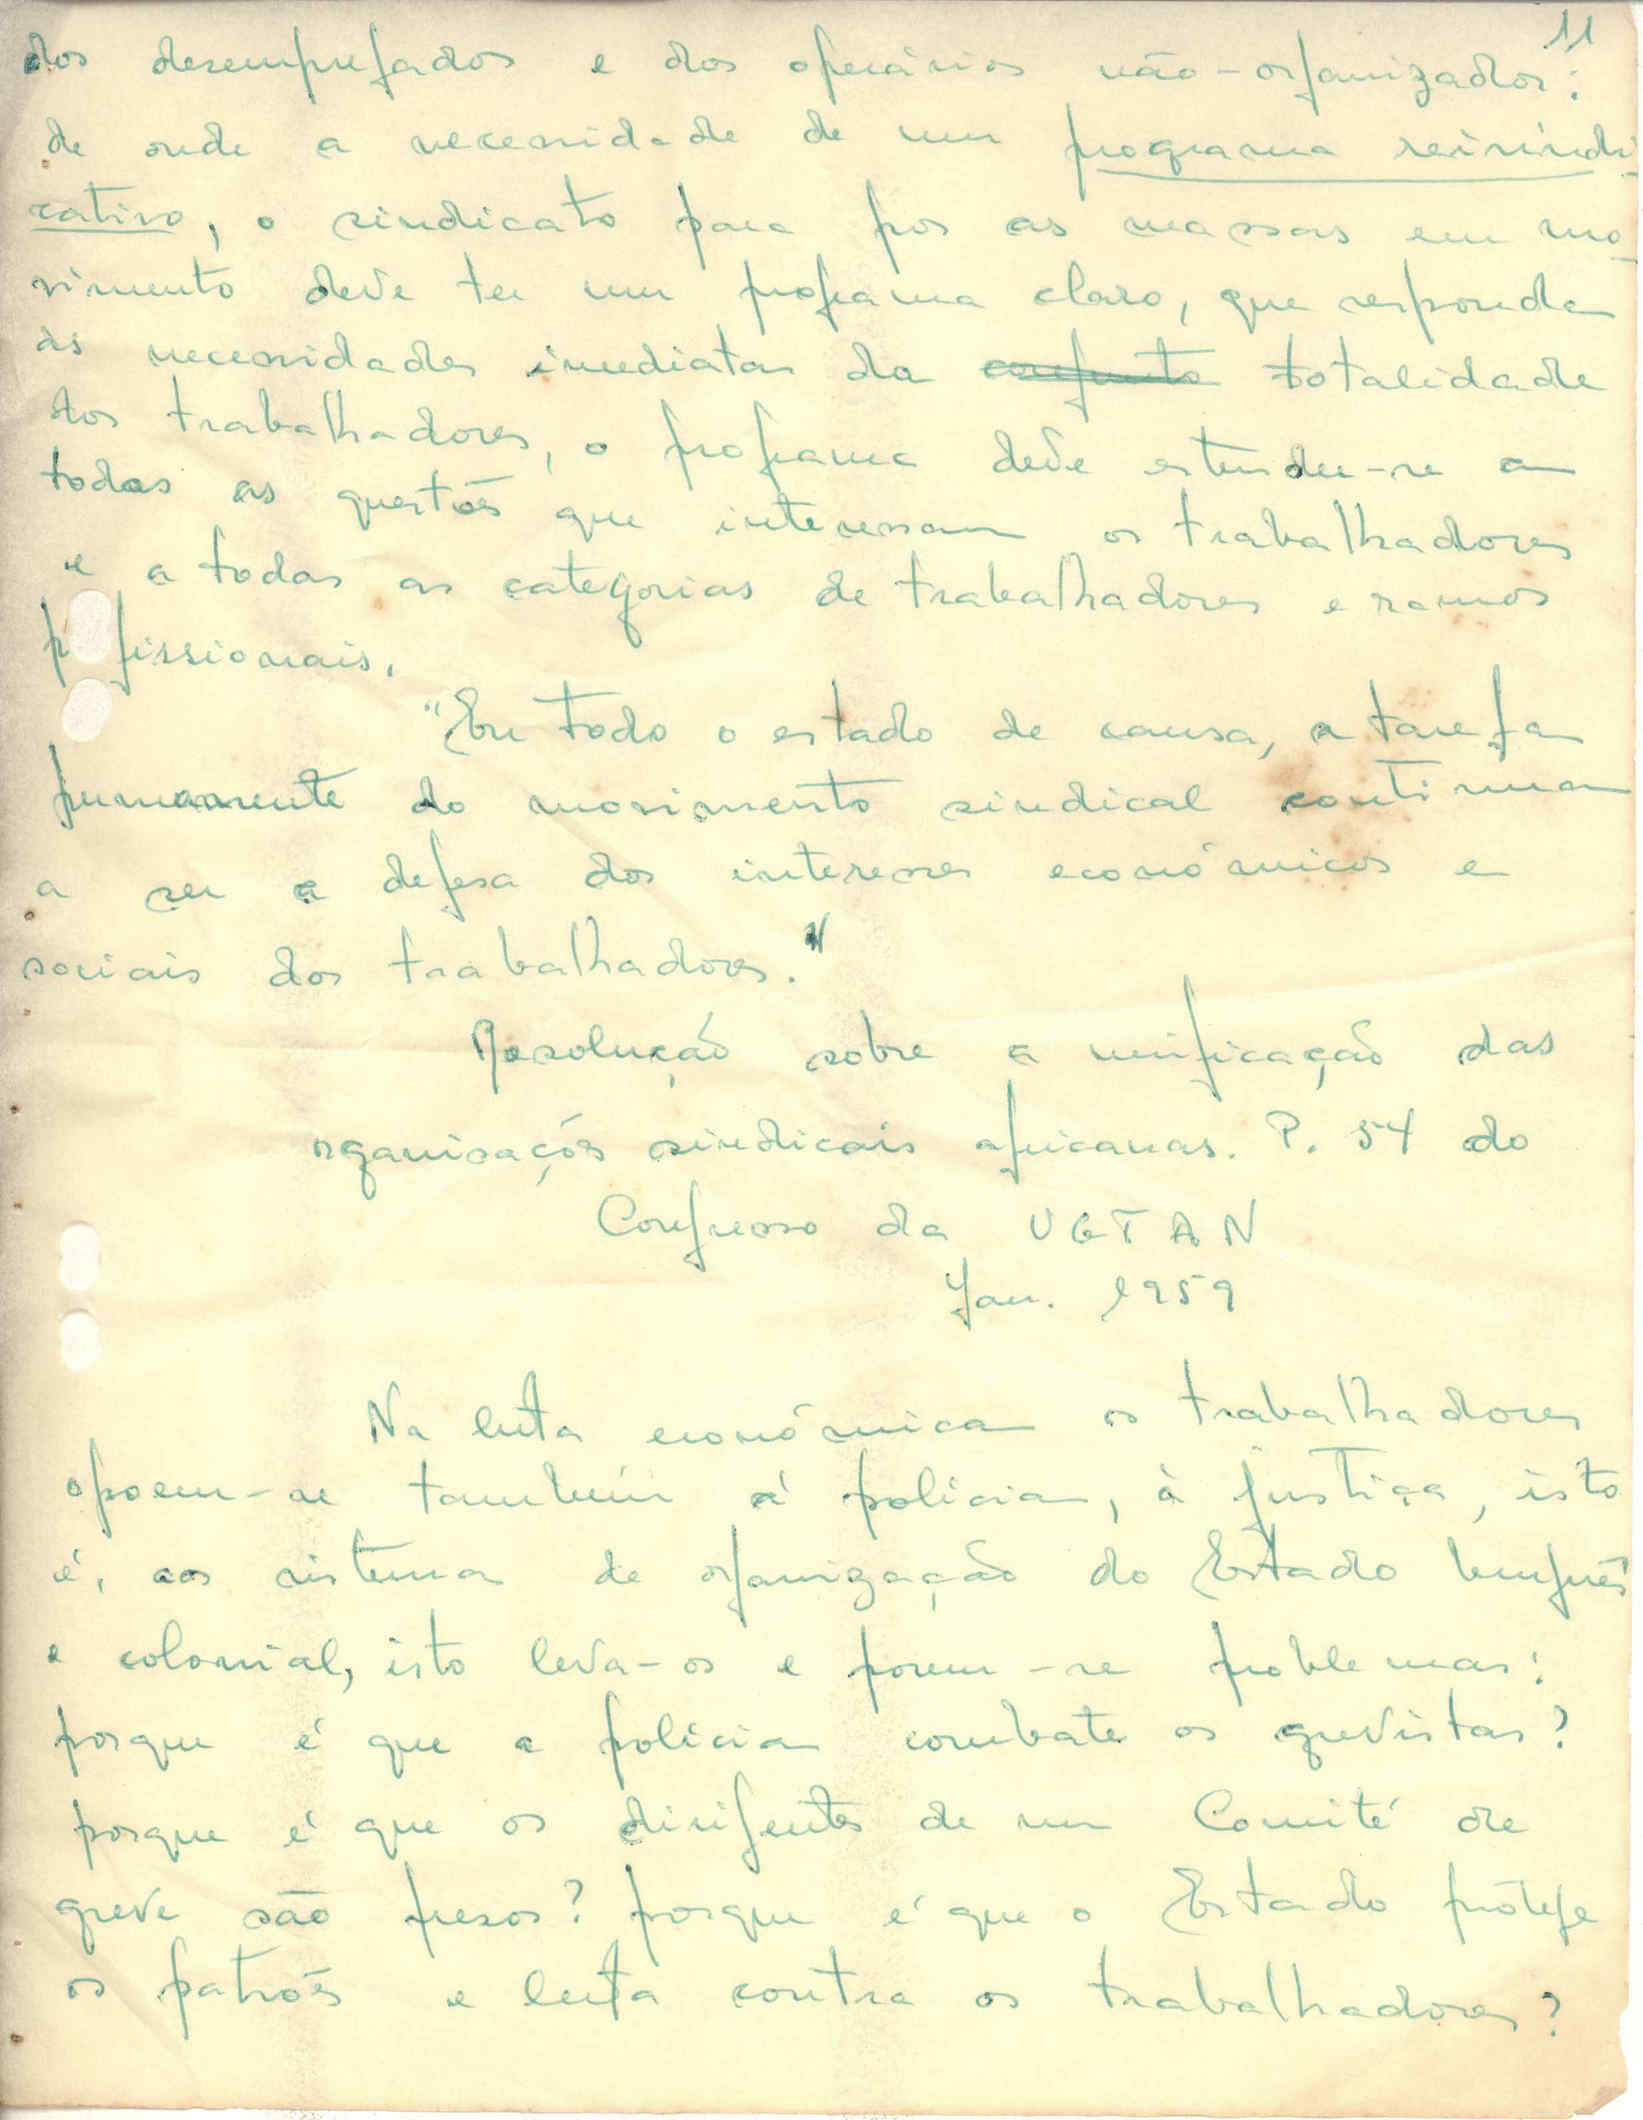 11
dos desempregados e dos operários não-organizados:
de onde a necessidade de um programa reivindi-
cativo, o sindicato para por as massas em mo-
vimento deve ter um programa claro, que responda
às necessidades imediatas da conjunto totalidade
dos trabalhadores, o programa deve estender-se a
todas as questões que interessam os trabalhadores
e a todas as categorias de trabalhadores e ramos
p fissionais.
"Em todo o estado de causa, a tarefa
permanente do movimento sindical continua
a ser a defesa dos interesses económicos e
sociais dos trabalhadores."
Resolução sobre a unificação das
organisações sindicais africanas. P. 54 do
Congresso da UGTAN
Jan. 1959
Na luta económica os trabalhadores
opoem-se também á policia, à justiça, isto
é, aos sistema de organização do Estado burguês
e colonial, isto leva-os e poem-se problemas:
porque é que a policia combate os grevistas?
porque é que os dirigentes de um Comité de
greve são presos? porque é que o Estado protege
os patrões e luta contra os trabalhadores?